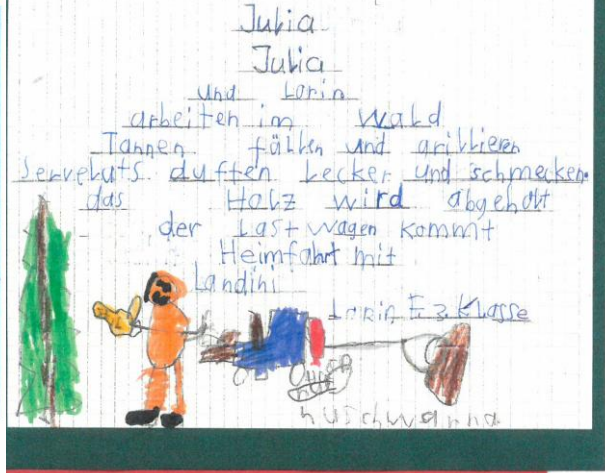 Julia
Julia
und Lorin
arbeiten im Wald
Tannen fällen und grillieren
Servelats duften Lecker und schmecken.
das Holz wird abgeholt
der Lastwagen kommt
Heimfahrt mit
Landini
Lorin E 3. Klasse